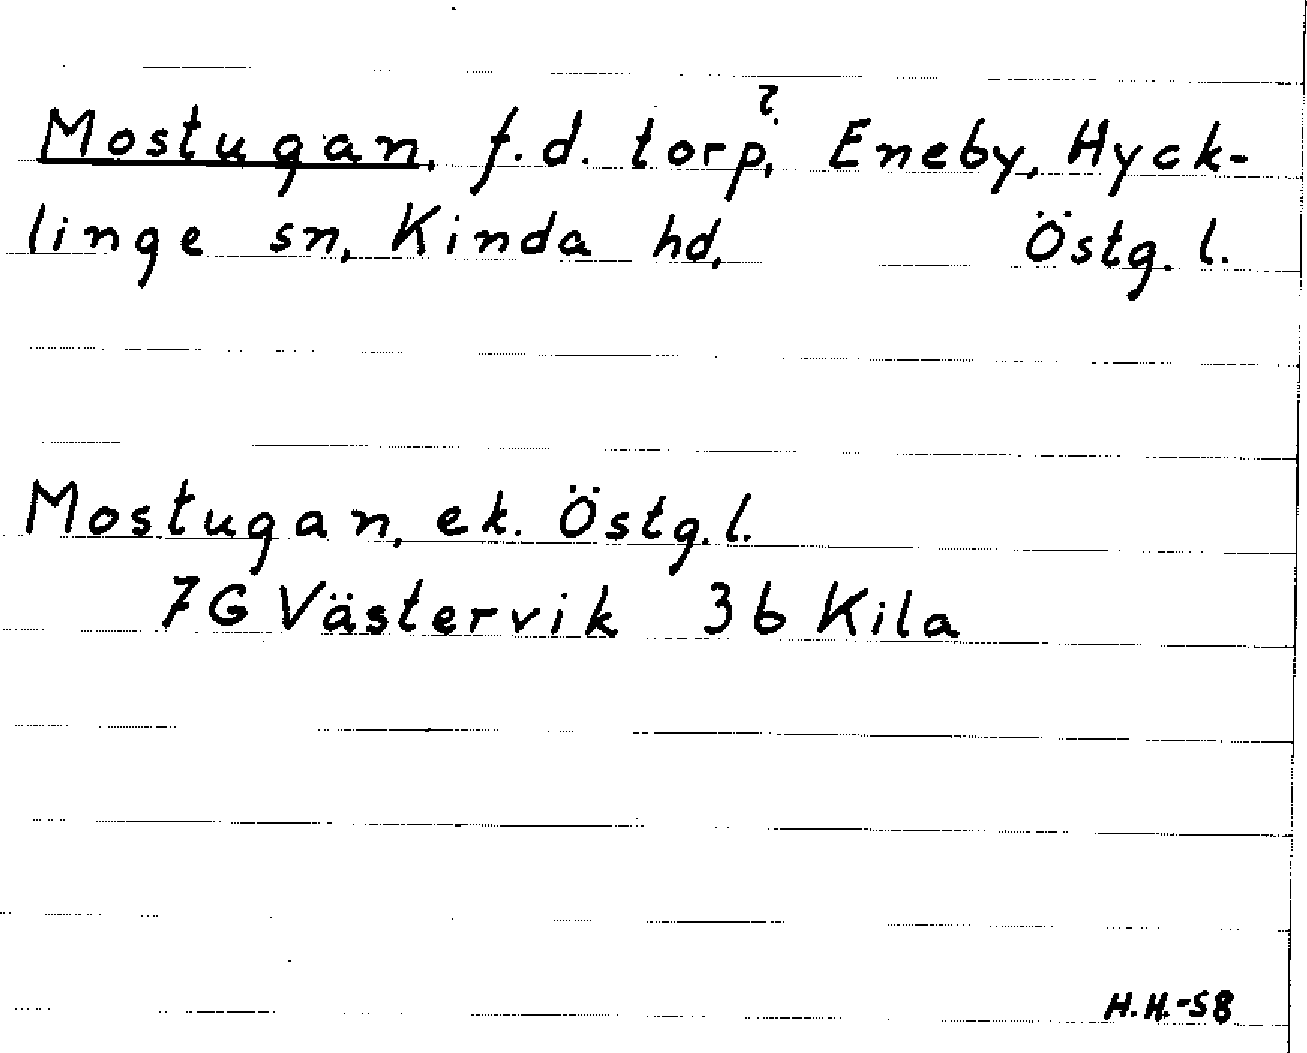 Mostugan, f.d. torp?, Eneby, Hyck-
linge sn, Kinda hd, Östg. l.
Mostugan, ek. Östg. l.
7G Västervik 3b Kila
H.H.-58